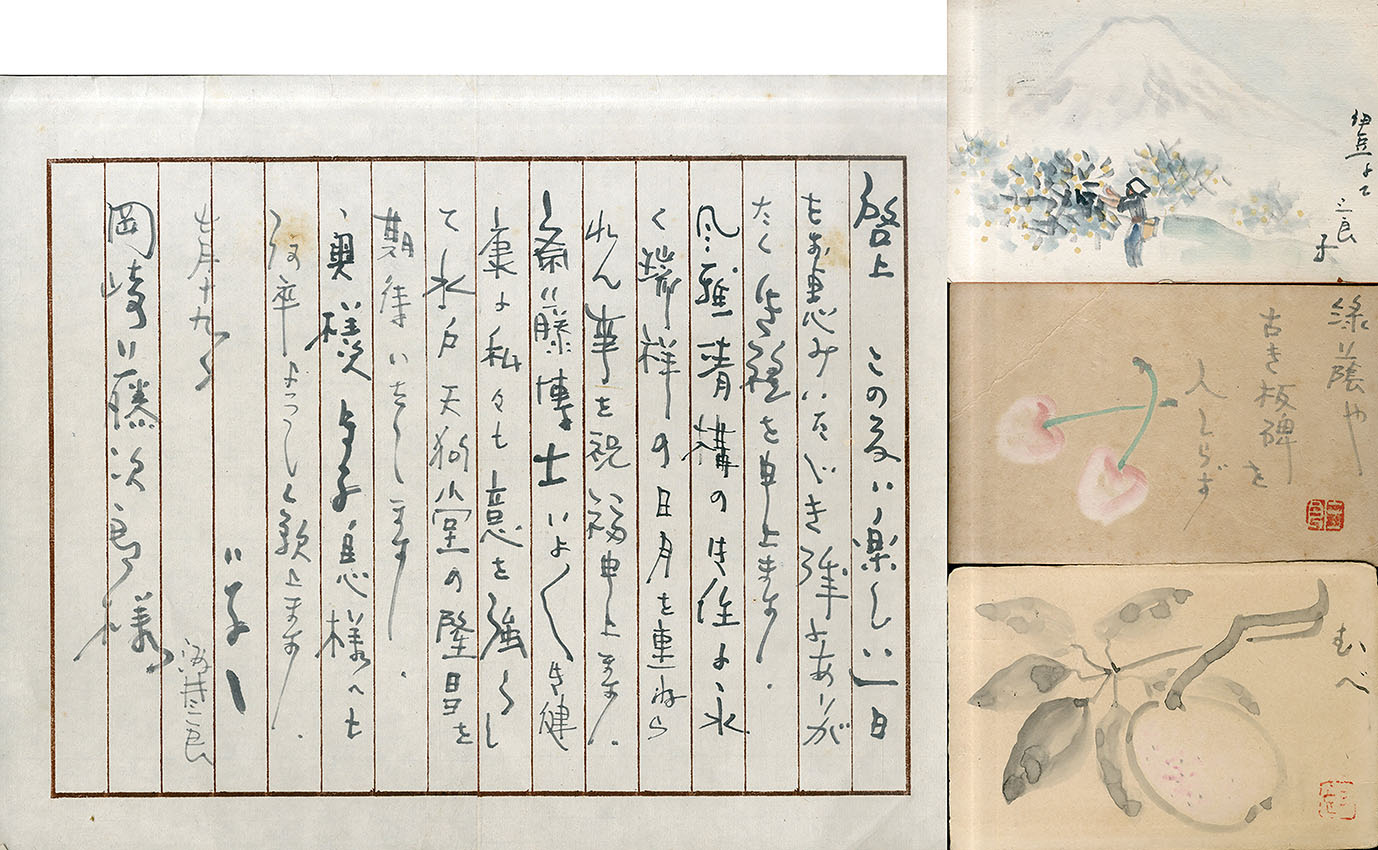 啓上 この多い楽しい一日
をお恵みいただき誠にありが
たく御禮を申上ます.
風雅清構の御住よ永
く瑞祥の日月を重ねら
れん事を祝福申上ます.
斎藤博士いよ〱御健
康よ私々も意を強うし
て水戸天狗堂の隆昌を
期待いたします.
奥様 息様へも
何卒よろしく願上ます.
七月十九日
岡崎藤次郎様
伊豆よて
三良
子
緑蔭や
古き板碑を
人しらず
むべ